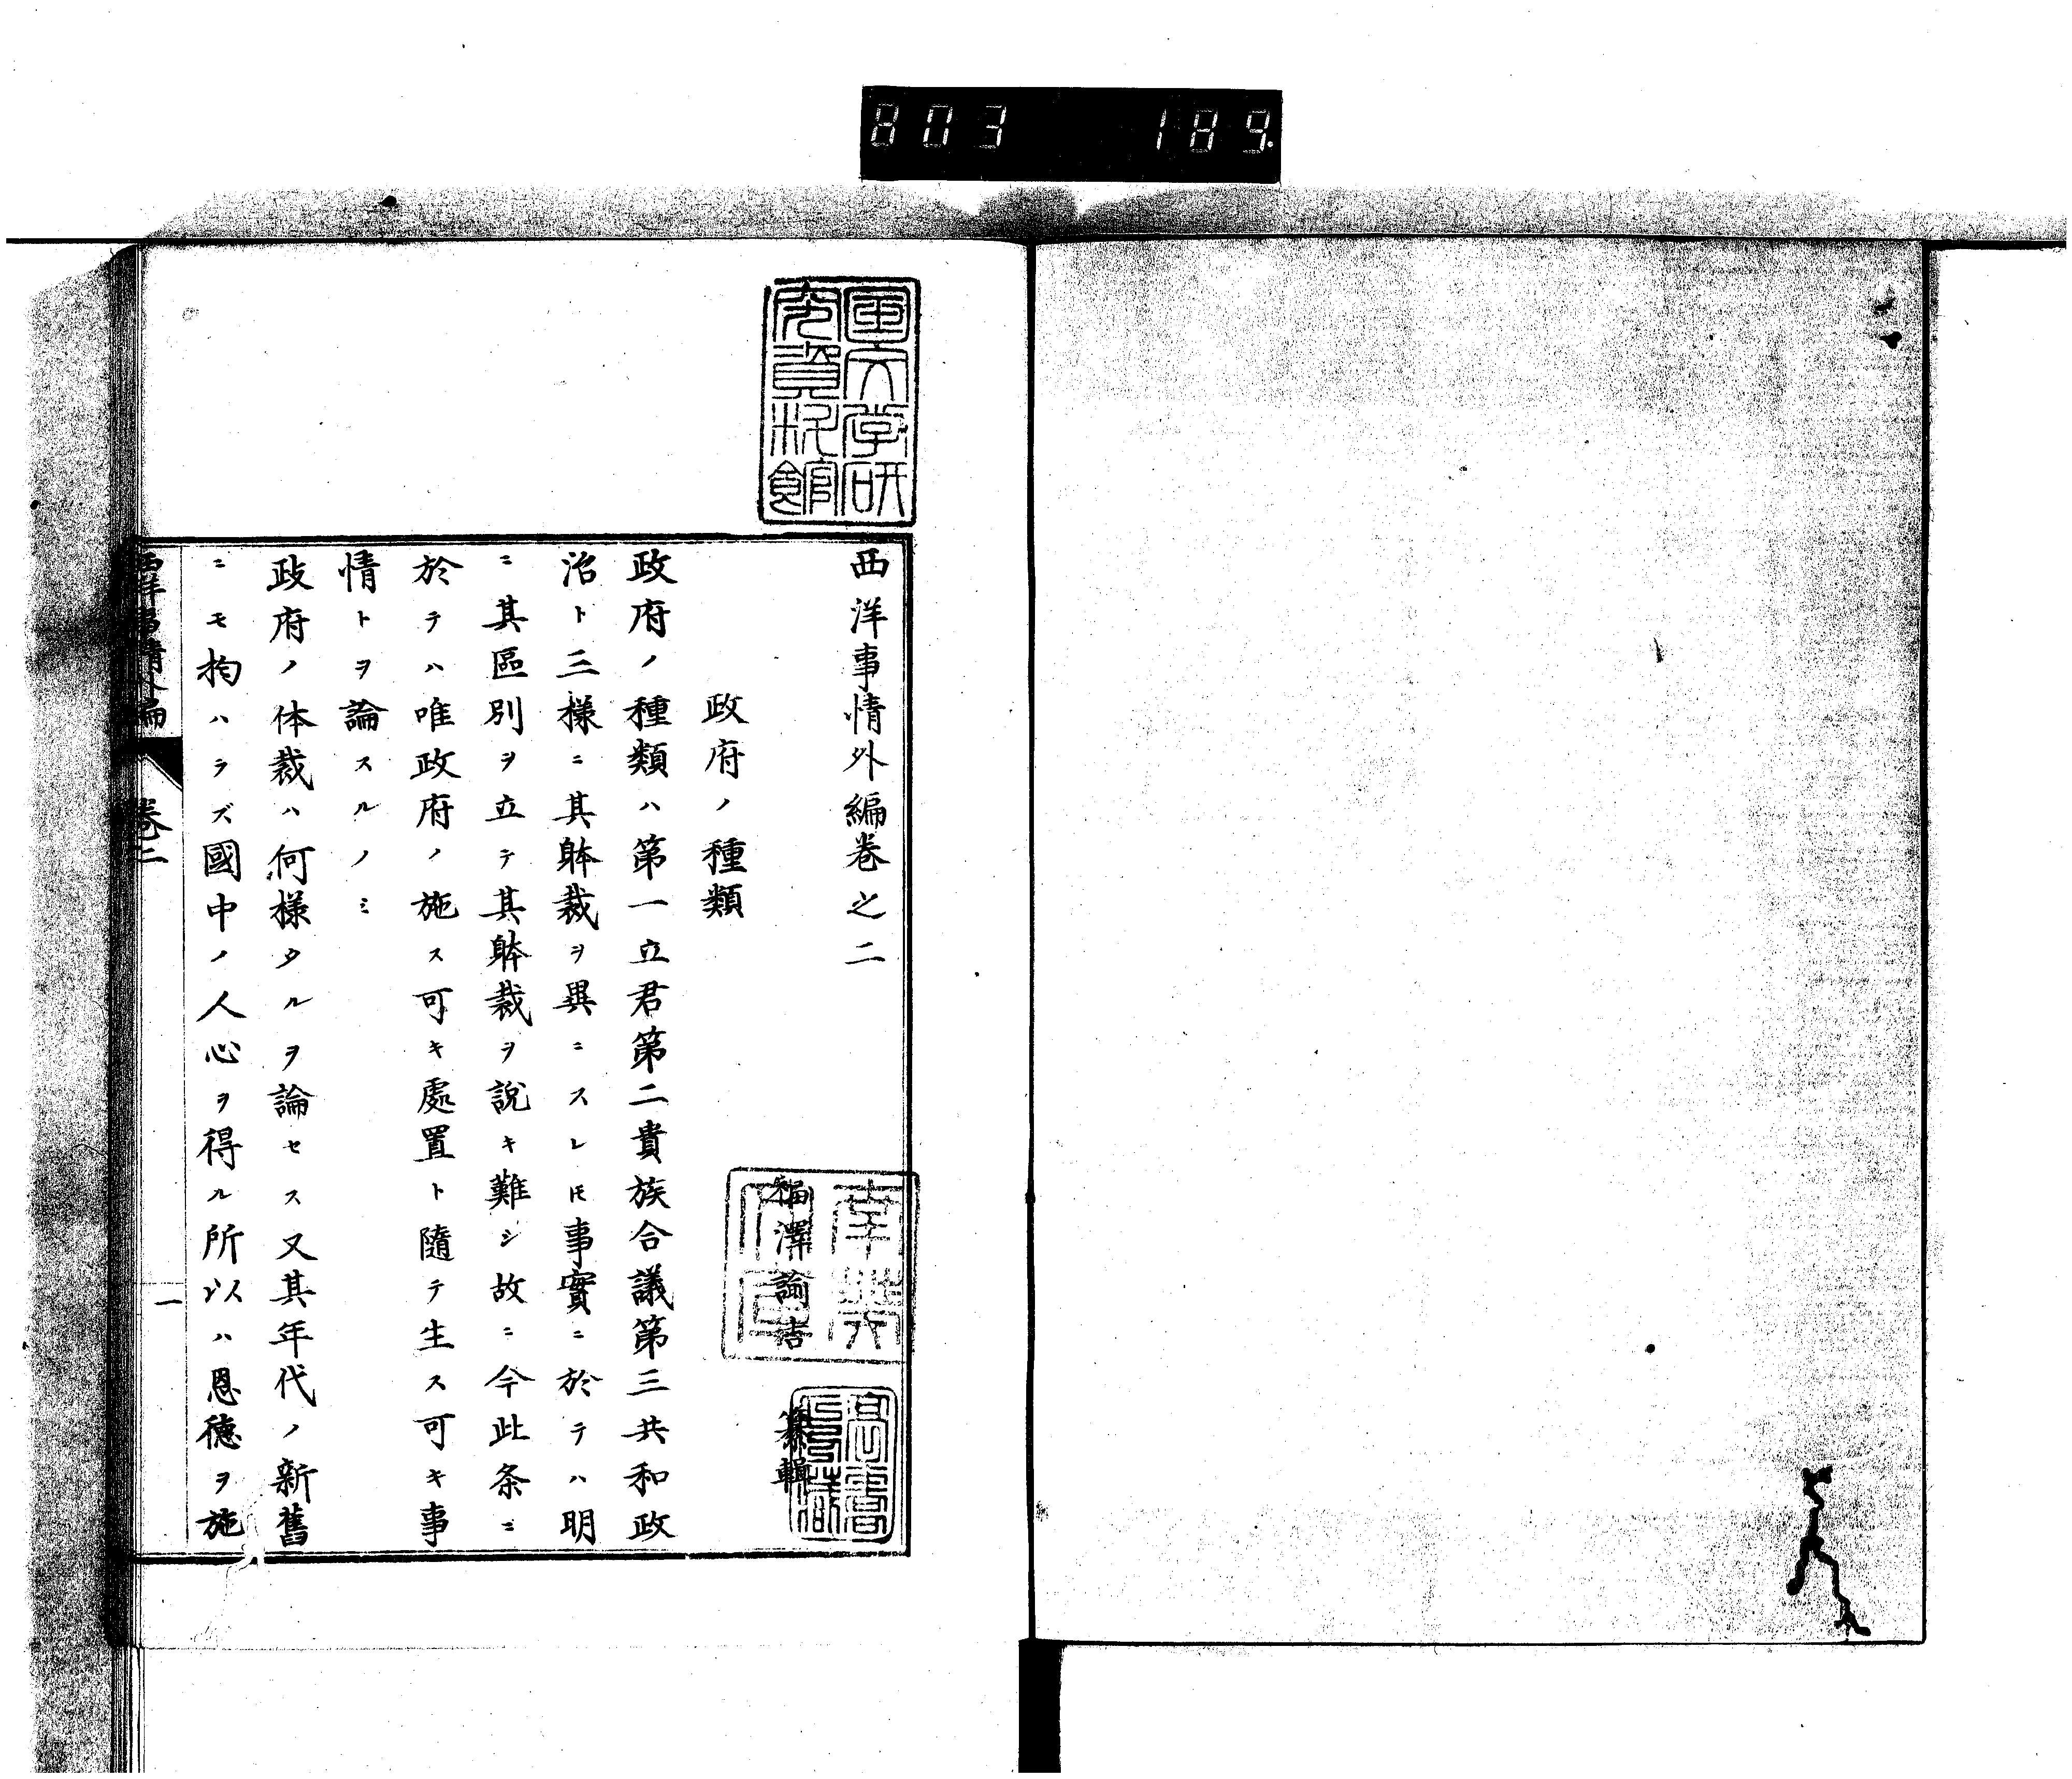 803 189
国文学研
究資料館
西洋事情外編卷之二
福澤諭吉 纂輯
政府ノ種類
政府ノ種類ハ第一立君第二貴族合議第三共和政
治ト三樣ニ其躰裁ヲ異ニスレ𪜈事實ニ於テハ明
ニ其區別ヲ立テ其躰裁ヲ說キ難シ故ニ今此条ニ
於テハ唯政府ノ施ス可キ處置ト隨テ生ス可キ事
情トヲ論スルノミ
政府ノ体裁ハ何樣タルヲ論セス又其年代ノ新舊
ニモ拘ハラズ國中ノ人心ヲ得ル所以ハ恩德ヲ施
西洋事情外編 卷二 一